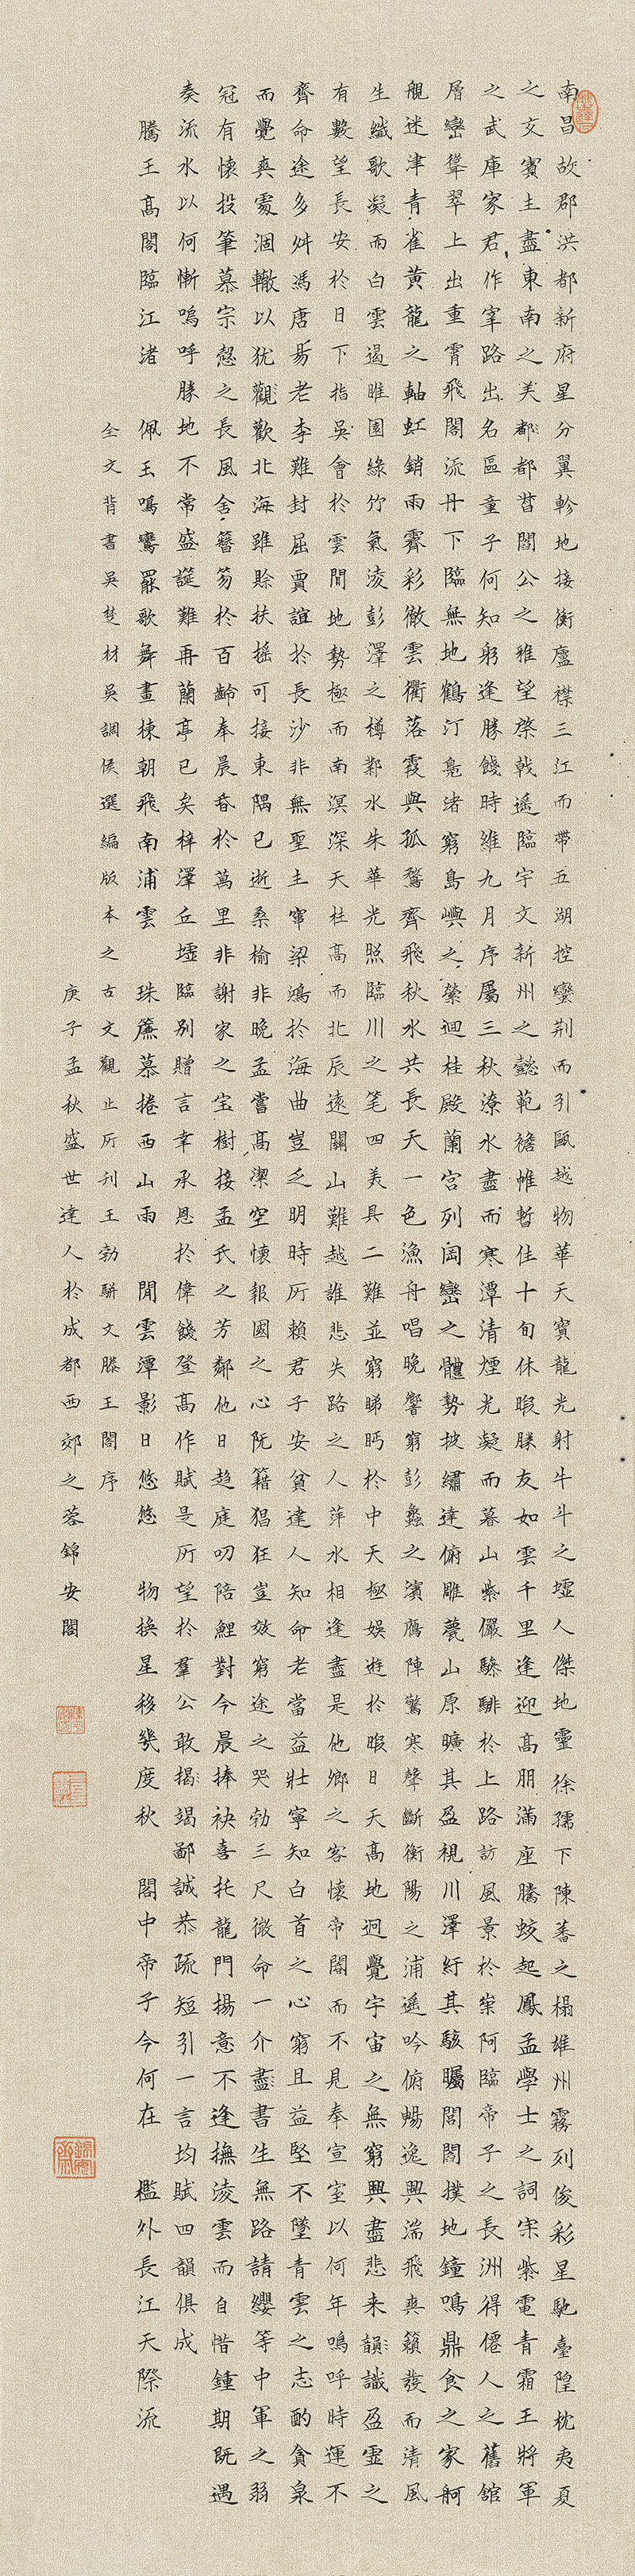 南昌故郡洪都新府星分翼軫地接衡廬襟三江而帶五湖控蠻荊而引甌越物華天寶龍光射牛斗之墟人傑地靈徐孺下陳蕃之榻雄州霧列俊彩星馳臺隍枕夷夏
之交賓主盡東南之美都都督閻公之雅望棨戟遙臨宇文新州之懿範襜帷暫住十旬休暇勝友如雲千里逢迎高朋滿座騰蛟起鳳孟學士之詞宗紫電青霜王將軍
之武庫家君作宰路出名區童子何知躬逢勝餞時維九月序屬三秋潦水盡而寒潭清煙光凝而暮山紫儼驂騑於上路訪風景於崇阿臨帝子之長洲得僊人之舊館
層巒聳翠上出重霄飛閣流丹下臨無地鶴汀鳧渚窮島嶼之縈迴桂殿蘭宮列岡巒之體勢披繡闥俯雕甍山原曠其盈視川澤紆其駭矚閭閻撲地鐘鳴鼎食之家舸
艦迷津青雀黃龍之軸虹銷雨霽彩徹雲衢落霞與孤鶩齊飛秋水共長天一色漁舟唱晚響窮彭蠡之濱雁陣驚寒聲斷衡陽之浦遙吟俯暢逸興湍飛爽籟發而清風
生纖歌凝而白雲遏睢園綠竹氣淩彭澤之樽鄴水朱華光照臨川之笔四美具二難並窮睇眄於中天極娛遊於暇日天高地迥覺宇宙之無窮興盡悲来韻識盈虛之
有數望長安於日下指吳會於雲間地勢極而南溟深天柱高而北辰遠關山難越誰悲失路之人萍水相逢盡是他鄉之客懷帝閽而不見奉宣室以何年嗚呼時運不
齊命途多舛馮唐易老李難封屈賈誼於長沙非無聖主竄梁鴻於海曲豈乏明時所賴君子安貧達人知命老當益壯寧知白首之心窮且益堅不墜青雲之志酌貪泉
而覺爽處涸轍以犹觀歡北海雖賒扶搖可接東隅已逝桑榆非晚孟嘗高潔空懷報國之心阮籍猖狂豈效窮途之哭勃三尺微命一介盡書生無路請纓等中軍之弱
冠有懷投筆慕宗慤之長風舍簪笏於百齡奉晨昏於萬里非謝家之宝樹接孟氏之芳鄰他日趨庭叨陪鯉對今晨捧袂喜托龍門揚意不逢撫淩雲而自惜鍾期既遇
奏流水以何慚嗚呼勝地不常盛筵難再蘭亭已矣梓澤丘墟臨別贈言幸承恩於偉餞登高作賦是所望於羣公敢揭竭鄙誠恭疏短引一言均賦四韻俱成
騰王高閣臨江渚 佩玉鳴鸞罷歌舞畫棟朝飛南浦雲 珠簾暮捲西山雨 閒雲潭影日悠悠 物換星移幾度秋 閣中帝子今何在 檻外長江天際流
全文背書吳楚材吳調侯選編版本之古文觀止所刊王勃駢文滕王閣序
庚子孟秋盛世達人於成都西郊之蓉錦安閣